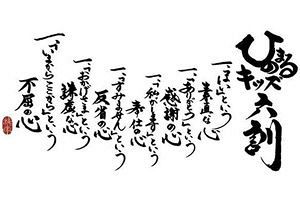 ひのまる
キッズ六訓
一、「はい」という
素直な心
一、「ありがとう」という
感謝の心
一、「私がします」という
奉仕の心
一、「すみません」という
反省の心
一、「おかげさま」という
謙虚な心
一、「いまからここから」という
不屈の心